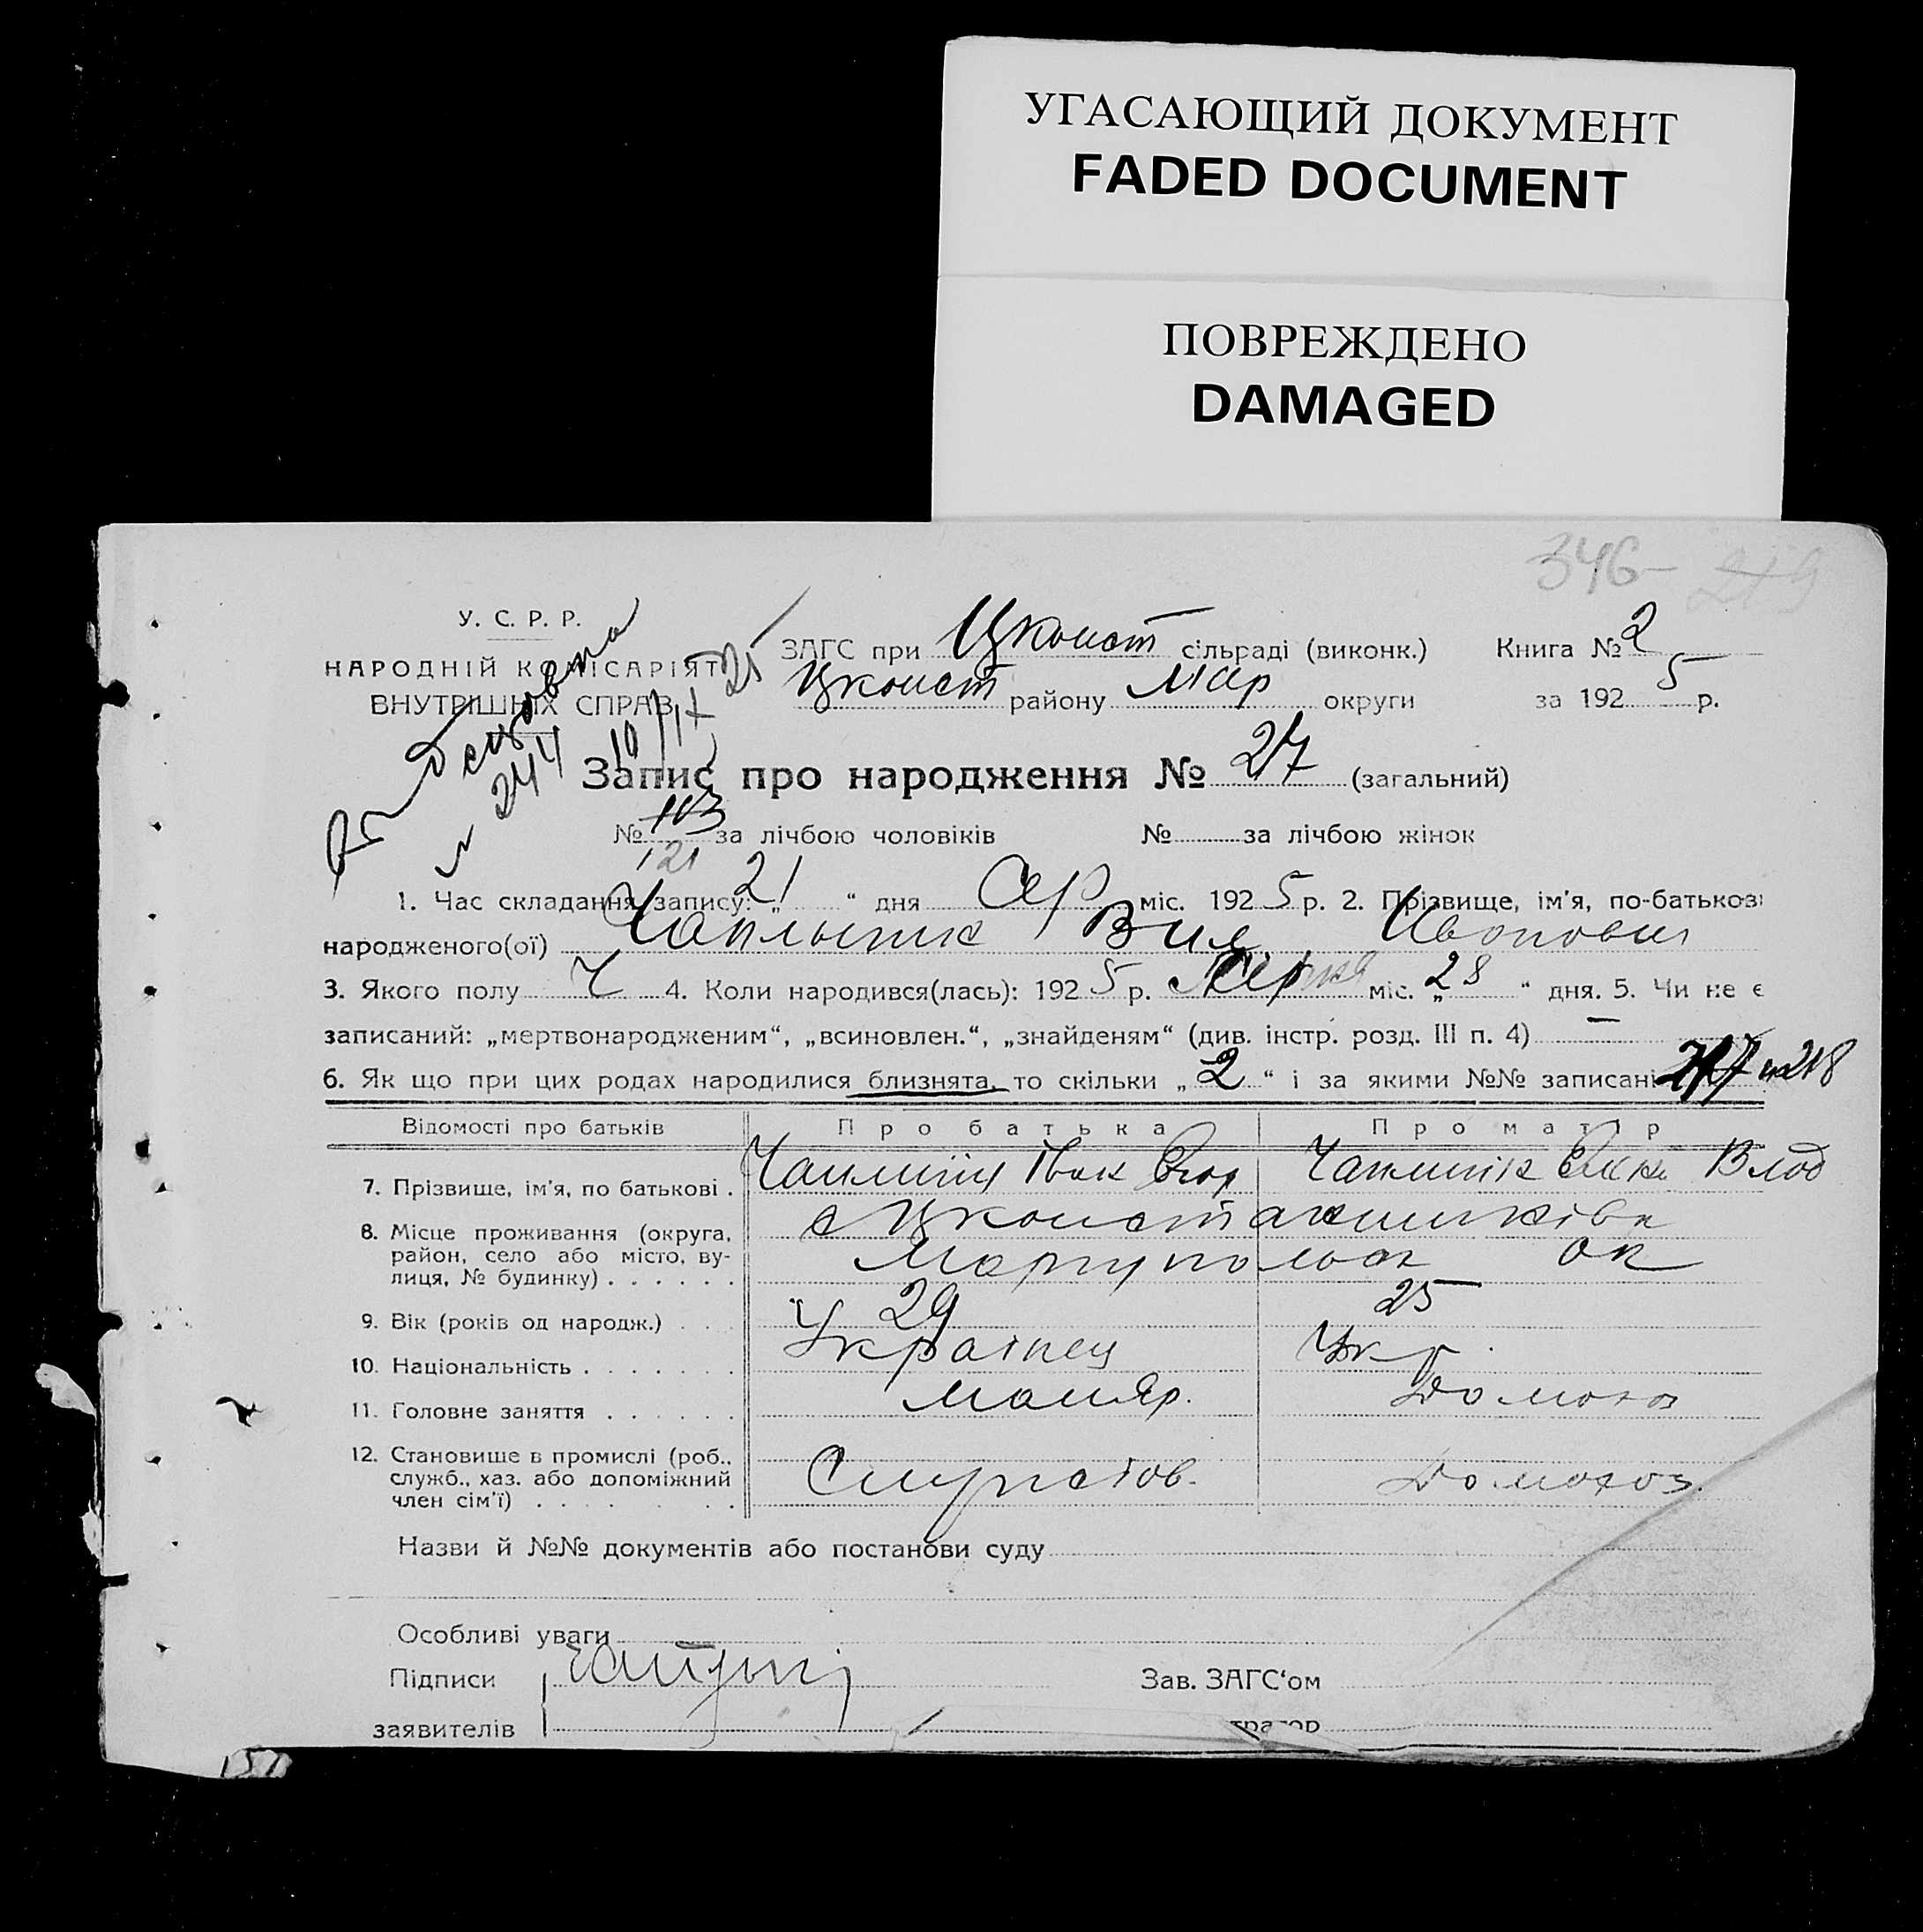 УГАСАЮЩИЙ ДОКУМЕНТ
FADED DOCUMENT
ПОВРЕЖДЕНО
DAMAGED
346-
У. С. Р. Р.
НАРОДНІЙ КОМІСАРІЯТ
ВНУТРІШНІХ СПРАВ
244 10/IX 25
ЗАГС при Цконст сільраді (виконк.) Книга № 2
Цконст району Мар округи за 1925 р.
Запис про народження № (загальний)
№ 103 за лічбою чоловіків № за лічбою жінок
121
1. Час складання запису: „ 21 “ дня Сер міс. 1925 р. 2. Прізвище, ім'я, по-батькові
народженого(ої) Иванович
3. Якого полу Ч 4. Коли народився(лась): 1925 р. міс. „ 28 “ дня. 5. Чи не є
записаний: „мертвонародженим“, „всиновлен.“, „знайденям“ (див. інстр. розд. III п. 4) —
6. Як що при цих родах народилися близнята, то скільки „ 2 “ і за якими №№ записані 217 и 218
Відомості про батьків Про батька Про матір
7. Прізвище, ім'я, по батькові . Іван Влод
8. Місце проживання (округа,
район, село або місто, ву-
лиця, № будинку) . . . . . . Маріупольск ок
9. Вік (років од народж.) . . . 29 25
10. Національність . . . . . . . Українец Укр.
11. Головне заняття . . . . . . маляр.
12. Становище в промислі (роб.,
служб., хаз. або допоміжний
член сім'ї) . . . . . . . Домохоз.
Назви й №№ документів або постанови суду
Особливі уваги
Підписи Зав. ЗАГС'ом
заявителів
151